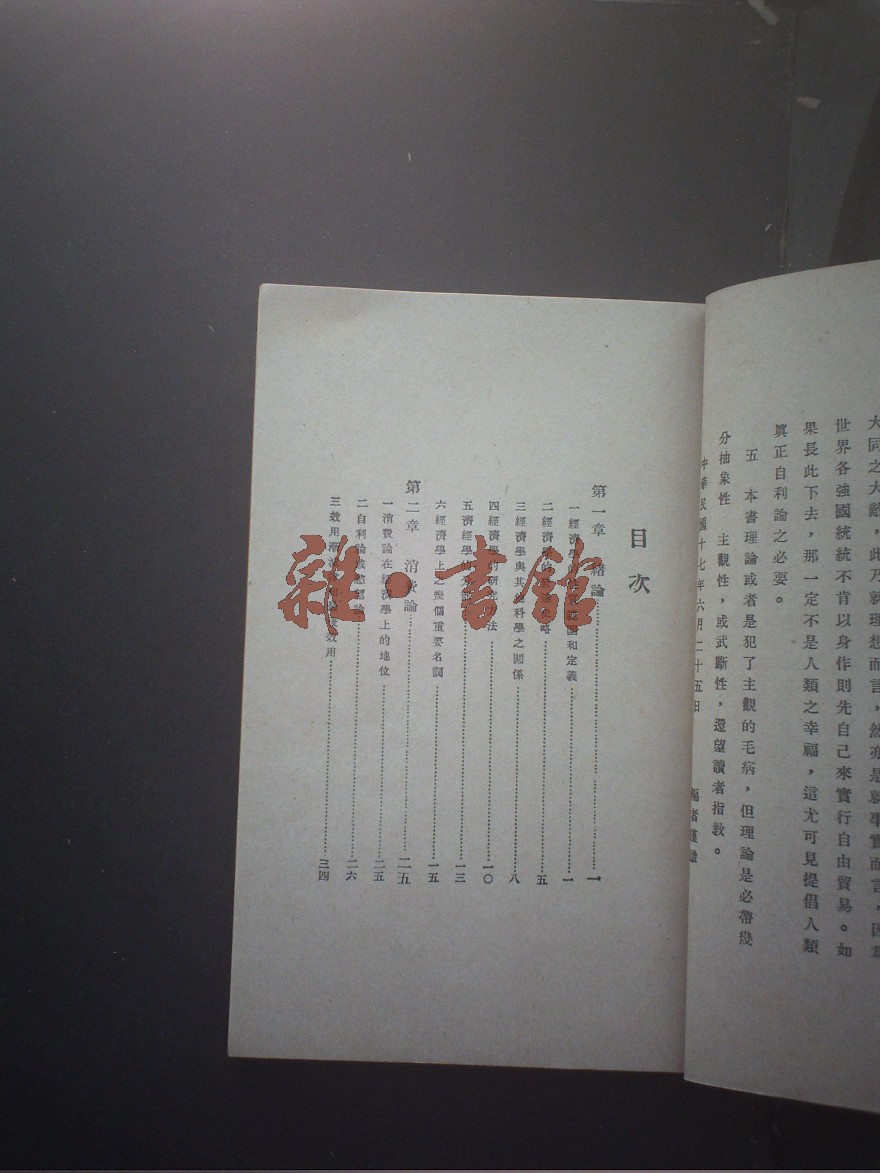 世界各強國統統不肯以身作則先自己來實行自由貿易。如
果長此下去，那一定不是人類之幸福，這尤可見提倡人類
眞正自利論之必要。
五　本書理論或者是犯了主觀的毛病，但理論是必帶幾
分抽象性　主觀性，或武斷性，還望讀者指教。
中華民國十七年六月二十五日
目次
第一章　緒論 一
一經濟學 和定義 一
二經濟學 略 五
三經濟學與其他科學之關係 八
四經濟學的研究 法 一〇
五濟經學 一三
六經濟學上之幾個重要名詞 一五
第二章　消費論 二五
一消費論在經濟學上的地位 二五
二自利論 二六
三效用 效用 三四
雜·書館